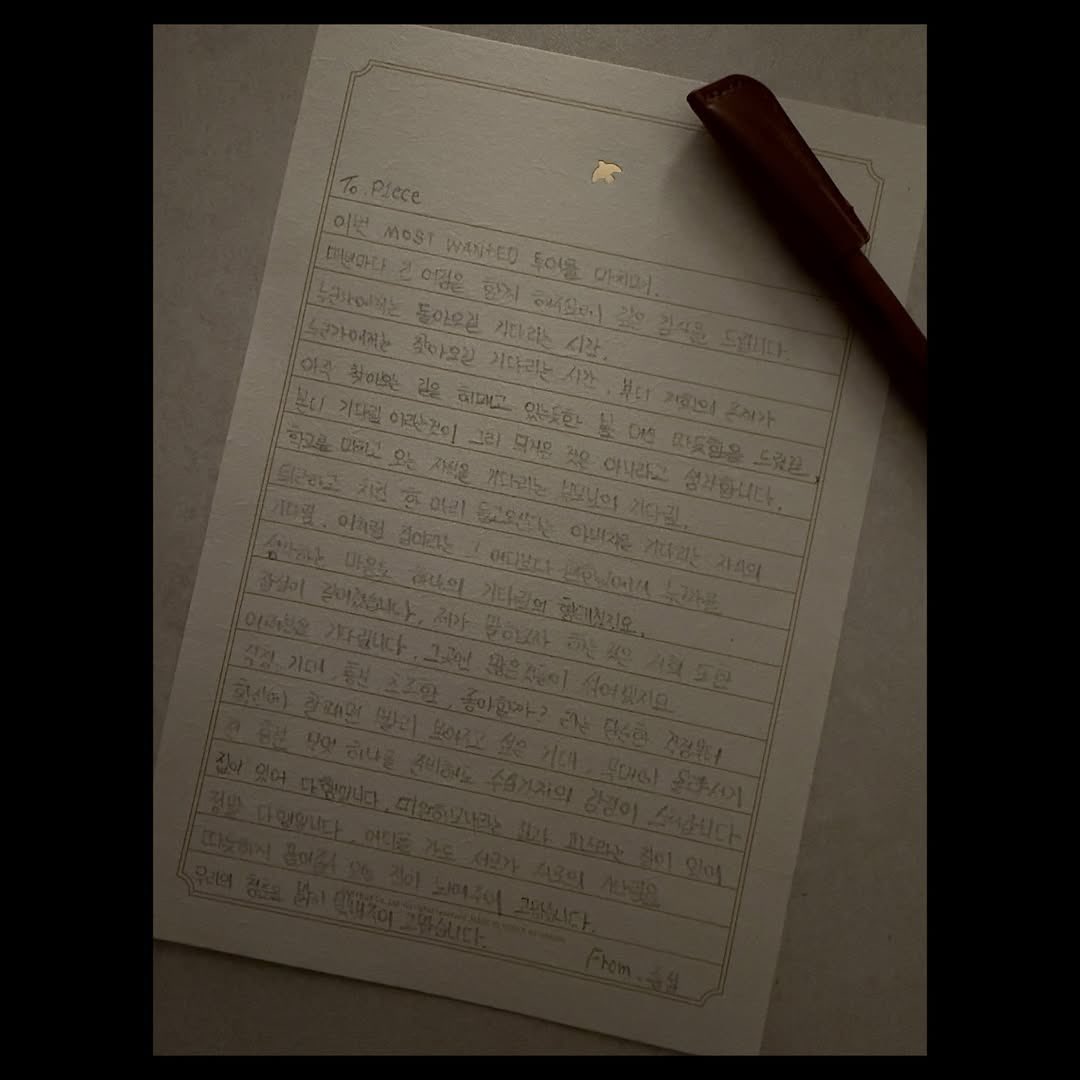 To. P1ece
이번 MOST WANTED 투어를 마치며.
매번마다 긴 여정을 함께 해주심에 깊은 감사를 드립니다.
누군가에게는 돌아오길 기다리는 시간,
누군가에게는 찾아오길 기다리는 시간, 부디 저희의 존재가
아직 찾아오는 길을 헤매고 있는듯한 봄 대신 따뜻함을 드렸길,
본디 기다림 이라는것이 그리 무거운 것은 아니라고 생각합니다.
학교를 마치고 오는 자식을 기다리는 부모님의 기다림,
퇴근하고 치킨 한 마리 들고오신다는 아버지를 기다리는 자식의
기다림, 이처럼 집이라는 어디보다 편안한곳에서 누군가를
생각하는 마음도 하나의 기다림의 형태일지요.
길어졌습니다, 제가 말하고자 하는 것은 저희 또한
여러분을 기다립니다, 그곳엔 많은것들이 섞여있지요
걱정, 기대, 혹은 초조함, 좋아할까? 라는 단순한 걱정부터
확신이 찰때면 빨리 보여주고 싶은 기대, 무대에 올라서기
전 혹은 무엇 하나를 준비해도 수십가지의 감정이 스쳐갑니다
집이 있어 다행입니다, 피스라는 집이 있어
정말 다행입니다, 어디를 가도 서로가 서로의 기다림을
따뜻하게 품어줄 집이 되어주어 고맙습니다.
우리의 청춘을 밝게 빛내주어 고맙습니다.
From.